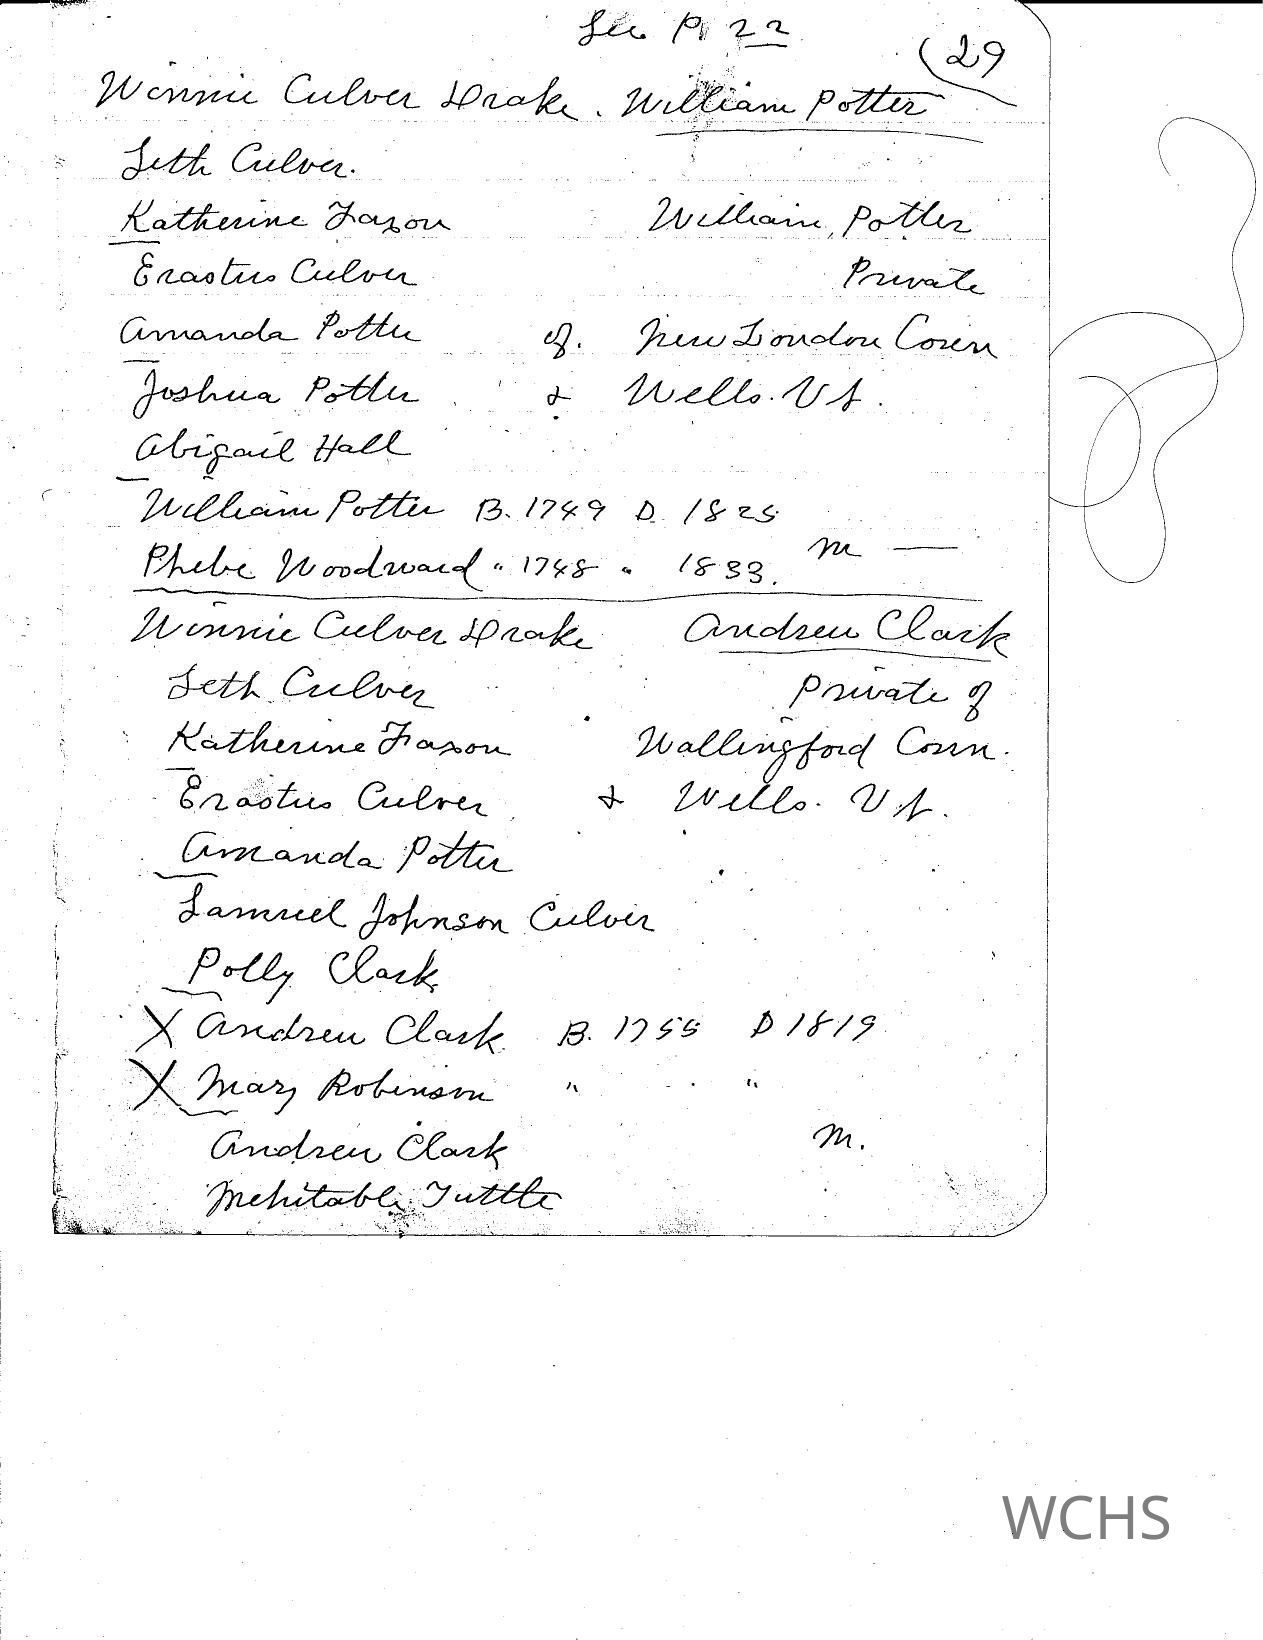 See P. 22
29
Winnie Culver Drake. William Potter
Seth Culver.
Katherine Faxon William Potter
Erastus Culver Private
Amanda Potter of. New London Conn
Joshua Potter & Wells. Vt.
Abigail Hall
William Potter B. 1749 D. 1825
Phebe Woodward " 1748 " 1833. m —
Winnie Culver Drake Andrew Clark
Seth Culver Private of
Katherine Faxon Wallingford Conn.
Erastus Culver & Wells. Vt.
Amanda Potter
Samuel Johnson Culver
Polly Clark
X Andrew Clark B. 1755 D 1819
X Mary Robinson " "
Andrew Clark m.
Mehitable Tuttle
WCHS